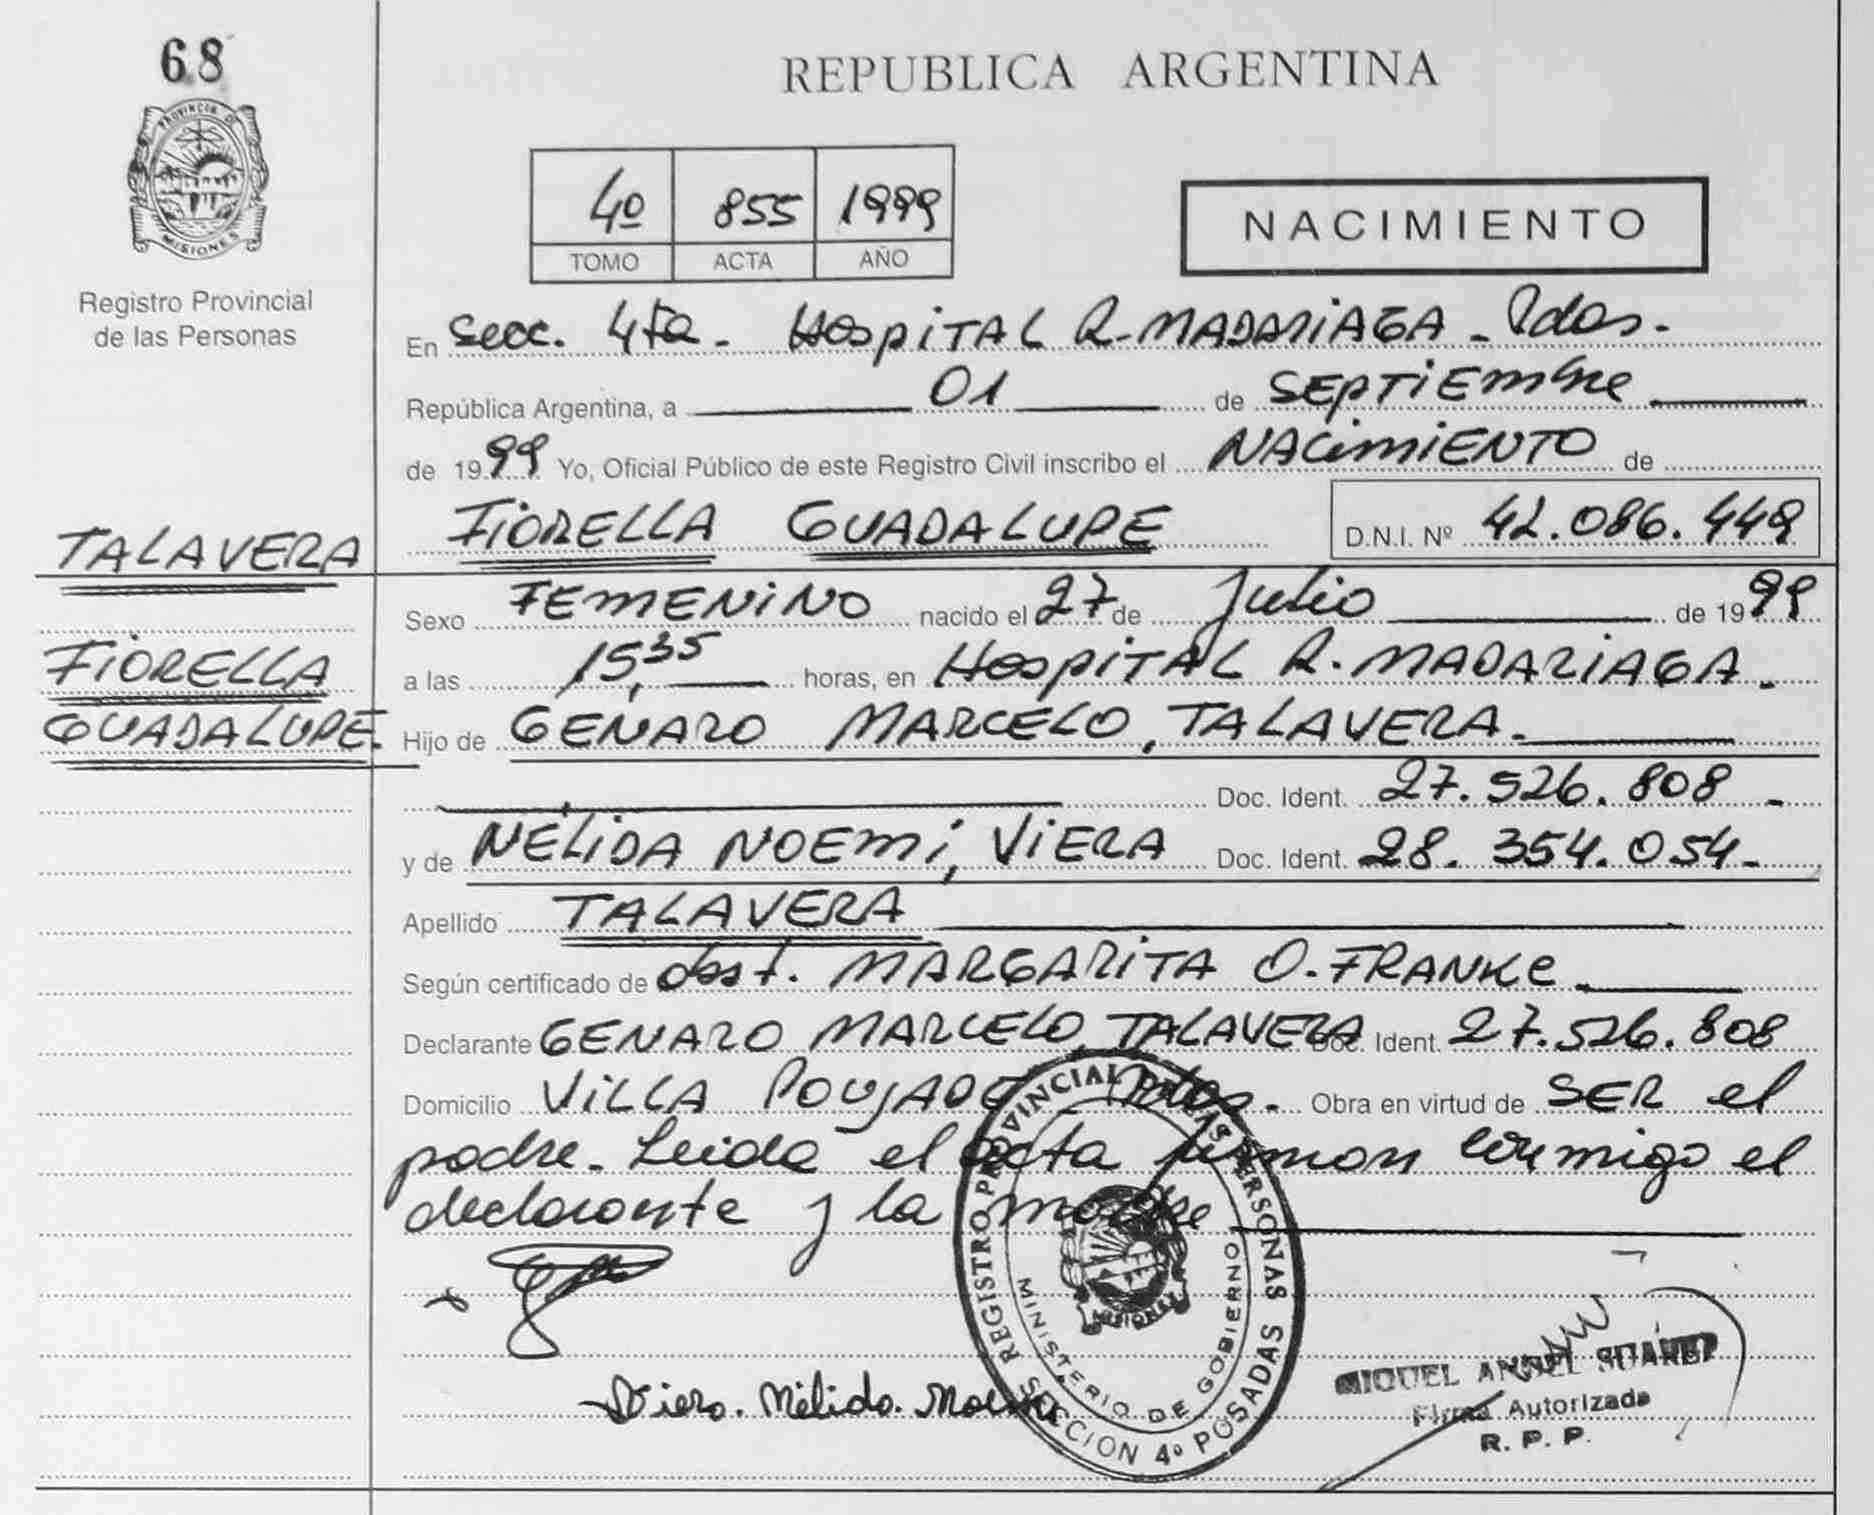 68
REPUBLICA ARGENTINA
PROVINCIA D
MISIONES
Registro Provincial
de las Personas
4º 855 1999
TOMO ACTA AÑO
NACIMIENTO
En Secc. 4ta. HospiTAL R. MADARiAGA - Pdas.
República Argentina, a 01 de SEPTiEmbre
de 1999 Yo, Oficial Público de este Registro Civil inscribo el NACimiENTO de
FiORELLA GUADALUPE D.N.I. Nº 42.086.449
TALAVERA
FiORELLA
GUADALUPE.
Sexo FEMENiNO nacido el 27 de Julio de 1999
a las 15,35 horas, en HospiTAL R. MADARIAGA.
Hijo de GENARO MARCELO, TALAVERA.
Doc. Ident. 27.526.808
y de NÉLIDA NOEMi, ViERA Doc. Ident. 28.354.054.
Apellido TALAVERA
Según certificado de obst. MARGARiTA O. FRANKe
Declarante GENARO MARCELO, TALAVERA Doc. Ident. 27.526.808
Domicilio ViLLA POUJADE Pdas. Obra en virtud de SER el
padre. Leida el acta firman conmigo el
declarante y la madre
REGISTRO PROVINCIAL DE LAS PERSONAS
MINISTERIO DE GOBIERNO
MISIONES
SECCION 4º POSADAS
Viera. Nélida. Noemi
MIGUEL ANGEL SUAREZ
Firma Autorizada
R. P. P.